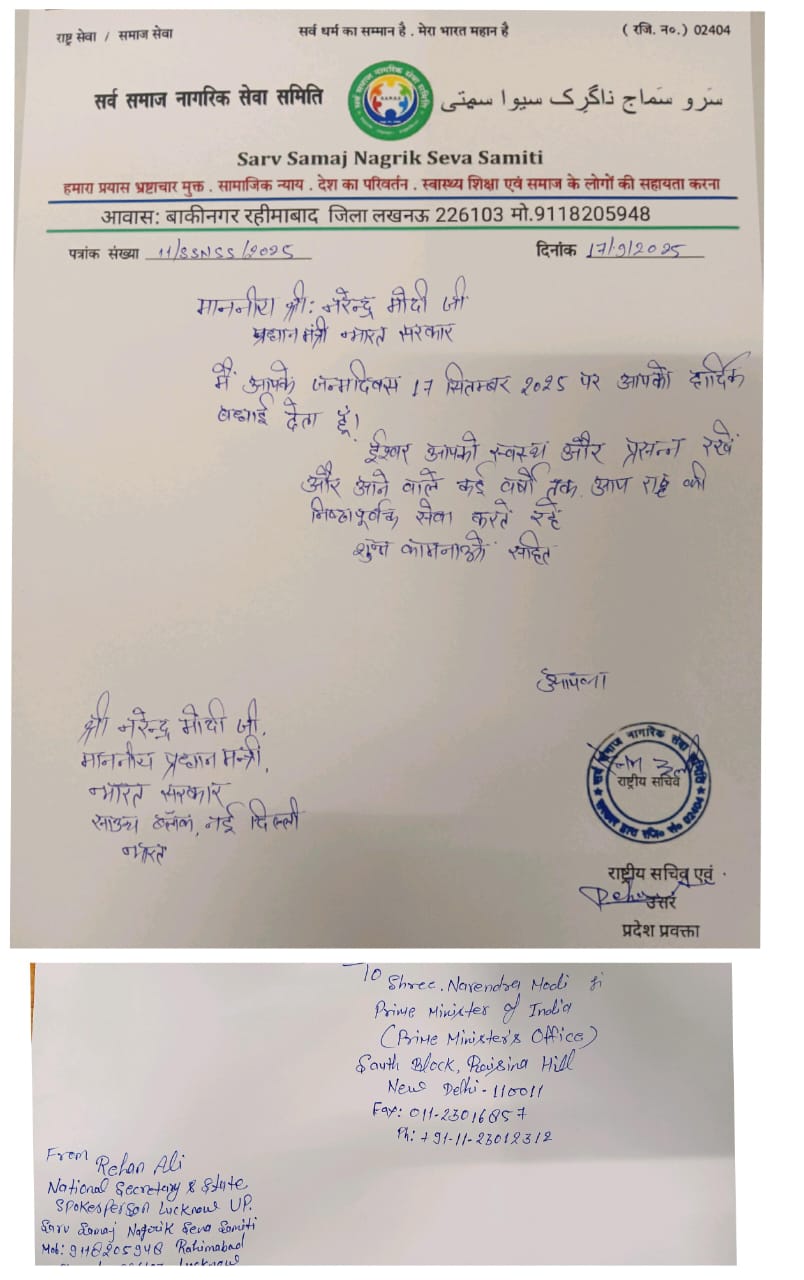 राष्ट्र सेवा / समाज सेवा
सर्व धर्म का सम्मान है . मेरा भारत महान है
( रजि. न०.) 02404
सर्व समाज नागरिक सेवा समिति
سَرو سَماج ناگرِک سیوا سمیتی
Sarv Samaj Nagrik Seva Samiti
हमारा प्रयास भ्रष्टाचार मुक्त . सामाजिक न्याय . देश का परिवर्तन . स्वास्थ्य शिक्षा एवं समाज के लोगों की सहायता करना
आवास: बाकीनगर रहीमाबाद जिला लखनऊ 226103 मो.9118205948
पत्रांक संख्या 11/SSNSS/2025
दिनांक 17/9/2025
माननीय श्री: नरेन्द्र मोदी जी
प्रधान मंत्री भारत सरकार
मैं आपके जन्मदिवस 17 सितम्बर 2025 पर आपको हार्दिक
बधाई देता हूँ।
ईश्वर आपको स्वस्थ और प्रसन्न रखें
और आने वाले कई वर्षों तक आप राष्ट्र की
निष्ठापूर्वक सेवा करते रहें
शुभ कामनाओं सहित
आपका
श्री नरेन्द्र मोदी जी,
माननीय प्रधान मन्त्री,
भारत सरकार
साउथ ब्लॉक, नई दिल्ली
भारत
सर्व समाज नागरिक सेवा समिति
राष्ट्रीय सचिव
सरकार द्वारा रजि० सं० 02404
राष्ट्रीय सचिव एवं
उत्तर
प्रदेश प्रवक्ता
To Shree. Narendra Modi ji
Prime Minister of India
(Prime Minister's Office)
South Block, Raisina Hill
New Delhi - 110011
Fax: 011-23016857
Ph: +91-11-23012312
From Rehan Ali
National Secretary & State
Spokesperson Lucknow UP.
Sarv Samaj Nagrik Seva Samiti
Mob: 9118205948 Rahimabad
Lucknow